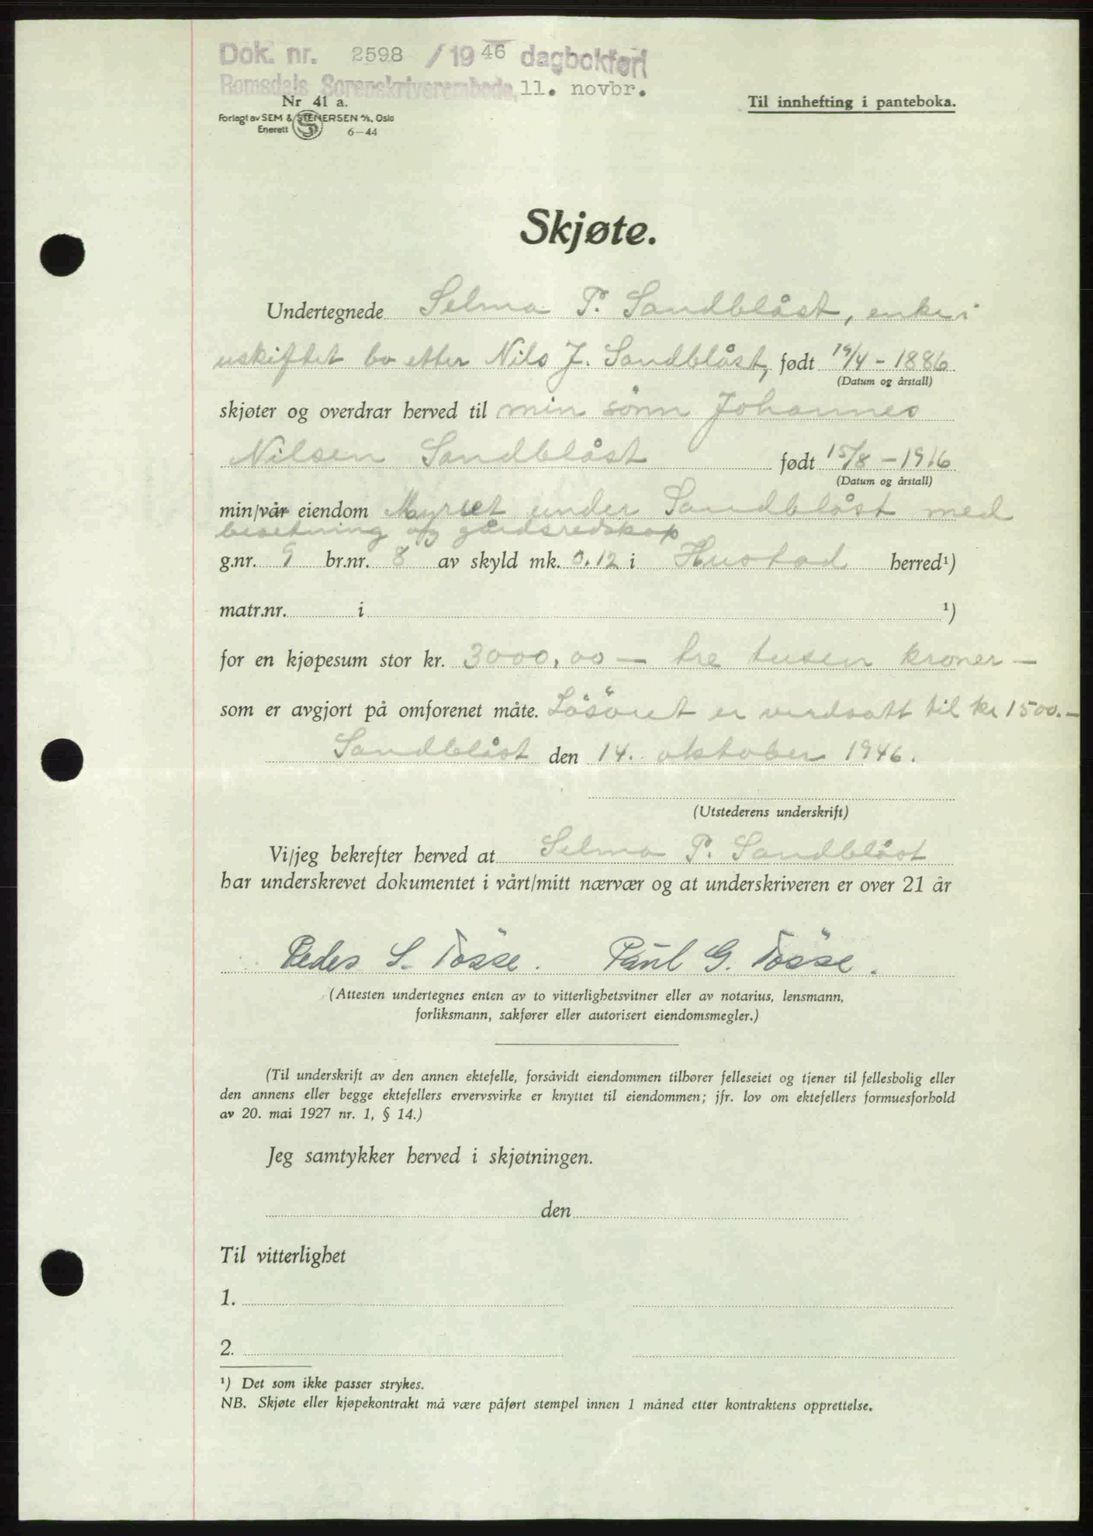 Dok. nr. 2598 /1946 dagbokført
Romsdals Sorenskriverembede, 11. novbr.
Nr 41 a.
Forlagt av SEM & STENERSEN A/S, Oslo
Enerett 6—44
Til innhefting i panteboka.
Skjøte.
Undertegnede Selma P. Sandblåst, enke i
uskiftet bo etter Nils J. Sandblåst, født 19/4 - 1886
(Datum og årstall)
skjøter og overdrar herved til min sönn Johannes
Nilsen Sandblåst født 15/8 - 1916
(Datum og årstall)
min/vår eiendom Myrset under Sandblåst med
besetning og gårdsredskap
g.nr. 9 br.nr. 8 av skyld mk. 0.12 i Hustad herred¹)
matr.nr. i ¹)
for en kjøpesum stor kr. 3000,00 — tre tusen kroner —
som er avgjort på omforenet måte. Lösöret er verdsatt til kr 1500.-
Sandblåst den 14. oktober 1946.
(Utstederens underskrift)
Vi/jeg bekrefter herved at Selma P. Sandblåst
har underskrevet dokumentet i vårt/mitt nærvær og at underskriveren er over 21 år
Peder S. Tösse. Paul G. Tösse.
(Attesten undertegnes enten av to vitterlighetsvitner eller av notarius, lensmann,
forliksmann, sakfører eller autorisert eiendomsmegler.)
(Til underskrift av den annen ektefelle, forsåvidt eiendommen tilhører felleseiet og tjener til fellesbolig eller
den annens eller begge ektefellers ervervsvirke er knyttet til eiendommen; jfr. lov om ektefellers formuesforhold
av 20. mai 1927 nr. 1, § 14.)
Jeg samtykker herved i skjøtningen.
den
Til vitterlighet
1.
2.
¹) Det som ikke passer strykes.
NB. Skjøte eller kjøpekontrakt må være påført stempel innen 1 måned etter kontraktens opprettelse.